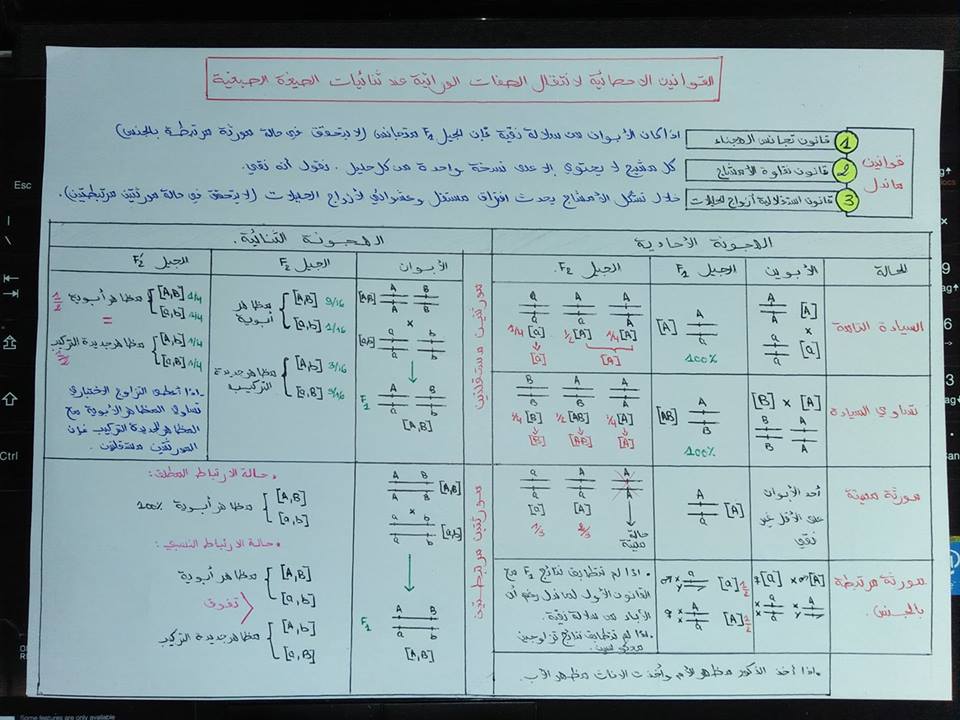 القوانين الاحصائية لانتقال الصفات الوراثية عند ثنائيات الصيغة الصبغية
قوانين ماندل
1 قانون تجانس الهجناء
اذا كان الأبوان من سلالة نقية فإن الجيل F₁ متجانس (لا يتحقق في حالة مورثة مرتبطة بالجنس)
2 قانون نقاوة الأمشاج
كل مشيج لا يحتوي إلا على نسخة واحدة من كل حليل . نقول أنه نقي.
3 قانون استقلالية أزواج الحليلات
خلال تشكل الأمشاج يحدث افتراق مستقل وعشوائي لأزواج الحليلات (لا يتحقق في حالة مورثتين مرتبطتين).
الهجونة الأحادية
الحالة
الأبوين
الجيل F₁
الجيل F₂
السيادة التامة
[A] × [a]
A A
a a
[A]
A a
100%
A A
A a
a a
1/4 [A] 1/2 [A] 1/4 [a]
[A] [a]
تساوي السيادة
[B] × [A]
B B
A A
[AB]
A B
100%
A A
A B
B B
1/4 [A] 1/2 [AB] 1/4 [B]
[A] [AB] [B]
مورثة مميتة
أحد الأبوان
على الأقل غير
نقي
[A]
A a
A A
A a
a a
حالة
مميتة
[A] [a]
2/3 1/3
مورثة مرتبطة
بالجنس
♀[a] × ♂[A]
[a] 1/2
[A] 1/2
. اذا لم تتطابق نتائج F₁ مع
القانون الأول لماندل رغم أن
الآباء من سلالة نقية.
. اذا لم تتطابق نتائج تزاوجين
.اذا أخذ الذكور مظهر الأم وأخذت الاناث مظهر الأب.
الهجونة الثنائية.
الأبوان
الجيل F₂
الجيل F₂'
مورثتين مستقلتين
[AB]
A B
A B
×
[ab]
a b
a b
F₁
A B
a b
[A,B]
مظاهر أبوية
[A,B] 9/16
[a,b] 1/16
مظاهر جديدة التركيب
[A,b] 3/16
[a,B] 3/16
1/2 مظاهر أبوية
[A,B] 1/4
[a,b] 1/4
=
1/2 مظاهر جديدة التركيب
[A,b] 1/4
[a,B] 1/4
.اذا أعطى التزاوج الاختباري
تساوي المظاهر الأبوية مع
المظاهر الجديدة التركيب فإن
المورثتين مستقلتين.
مورثتين مرتبطتين
A B
A B
[A,B]
×
a b
a b
[a,b]
F₁
A B
a b
[A,B]
. حالة الارتباط المطلق:
[A,B]
[a,b]
مظاهر أبوية 100%
. حالة الارتباط النسبي:
[A,B]
[a,b]
مظاهر أبوية
تفوق
[A,b]
[a,B]
مظاهر جديدة التركيب
Esc
Ctrl
Some features are only available